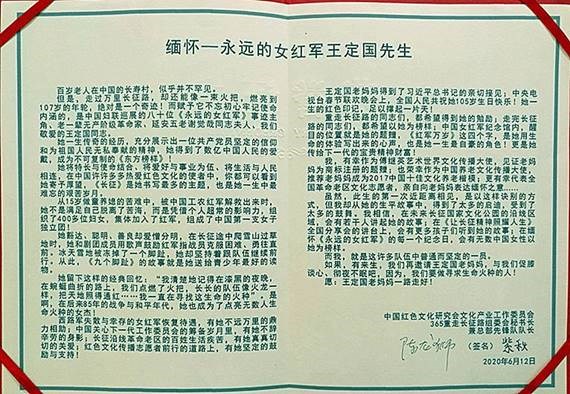 缅怀—永远的女红军王定国先生
百岁老人在中国的长寿村，似乎并不罕见。
但是，走过万里长征路，却还能像一束火把，燃亮到
107岁的年轮，绝对是一个奇迹！而赋予它不忘初心牢记使命
内涵的，是中国妇联巡展的八十位《永远的女红军》事迹主
角、老一辈无产阶级革命家、延安五老谢觉哉同志夫人，我们
敬爱的王定国同志。
她一生传奇的经历，充分展示出一位共产党员坚定的信仰
和为祖国人民无私奉献的精神，她得到了数亿中国人民的爱
戴，成为不可复制的《东方榜样》！
她将特长与使命结合、将爱好与事业为伍、将生活与人民
相连。中国许许多多热爱红色文化的使者，你都可以看到她
寄予厚望，《长征》是她书写最多的主题，也是她一生中最难
忘的艰苦岁月。
从15岁做童养媳的苦难中，被中国工农红军解救出来时，
她不是满足自己脱离了苦海，而是凭借个人超常的影响力，组
织了400多位妇女，集体加入了红军，组成了中国第一支女子
独立团！
她豁达、聪明、善良却爱憎分明，在长征途中爬雪山过草
地时，她和剧团成员用歌声鼓励红军指战员克服困难，勇往直
前。冰天雪地被冻掉了一个脚趾，她却坚持着跟队伍继续前
行。从此，《九个脚趾》的故事就是她送给青少年最好的礼
物。
她留下这样的经典回忆：“我清楚地记得在漆黑的夜晚，
在蜿蜒曲折的路上，我们点燃了火把，长长的队伍像火龙一
样，把天地照得通红……我一直在寻找这生命的火种”。是
啊，在后来85年的战争与和平年代，她也成为了点亮无数人生
命火种的女杰！
西路军失散与幸存的女红军恢复待遇，有她不远万里的鼎
力相助；中国关心下一代工作委员会的筹备岁月里，有她不辞
辛劳的身影；长征沿线革命老区的百姓生活疾苦，有她真真切
切的关爱；红色文化传播志愿者前行的道路上，有她坚定的鼓
励与支持！
王定国老妈妈得到了习近平总书记的亲切接见；中央电
视台春节联欢晚会上，全国人民共祝她105岁生日快乐！她一
生的红色印记，足以撑起一片天！
重走长征路的同志们，都希望得到她的勉励；走完长征
路的同志们，都希望以她为榜样；中国女红军纪念馆内，醒
目的位置，就有她的题词：《红军万岁》这四个字，是她用生
命的体验写出来的心声，也是她一生最自豪的角色！更是她
传给下一代的宝贵精神财富！
我，有幸作为傅雄英艺术世界文化传播大使，见证老妈
妈为商标注册的题赠；也荣幸作为中国养老文化传播大使，
推荐老妈妈成为2017中国十佳文化养老榜样；更有幸代表全
国革命老区文化志愿者，亲自向老妈妈表达缅怀之意……
虽然，此生的第一次近距离相见，是以这样诀别的方
式，但我，却从她的生平故事中，得到了太多的启发，受到了
太多的鼓舞。我相信，在未来长征国家文化公园的沿线区
域，会有若干人提起她的故事；在《让长征精神照耀人生》
全国分享会的讲台上，会有更多孩子们听到她的故事；在缅
怀《永远的女红军》的每一个纪念日，会有无数中国女性以
她为榜样。
而我，就是这许多队伍中普通而坚定的一员。
如果，有来生，我们再邀请王定国老妈妈，与我们促膝
谈心、彻夜不眠吧，因为，我们要做寻求生命火种的人！
愿：王定国老妈妈一路走好！
中国红色文化研究会文化产业工作委员会
365重走长征路组委会秘书长
筹备总部先锋队队长
（签名）紫秋
2020年6月12日